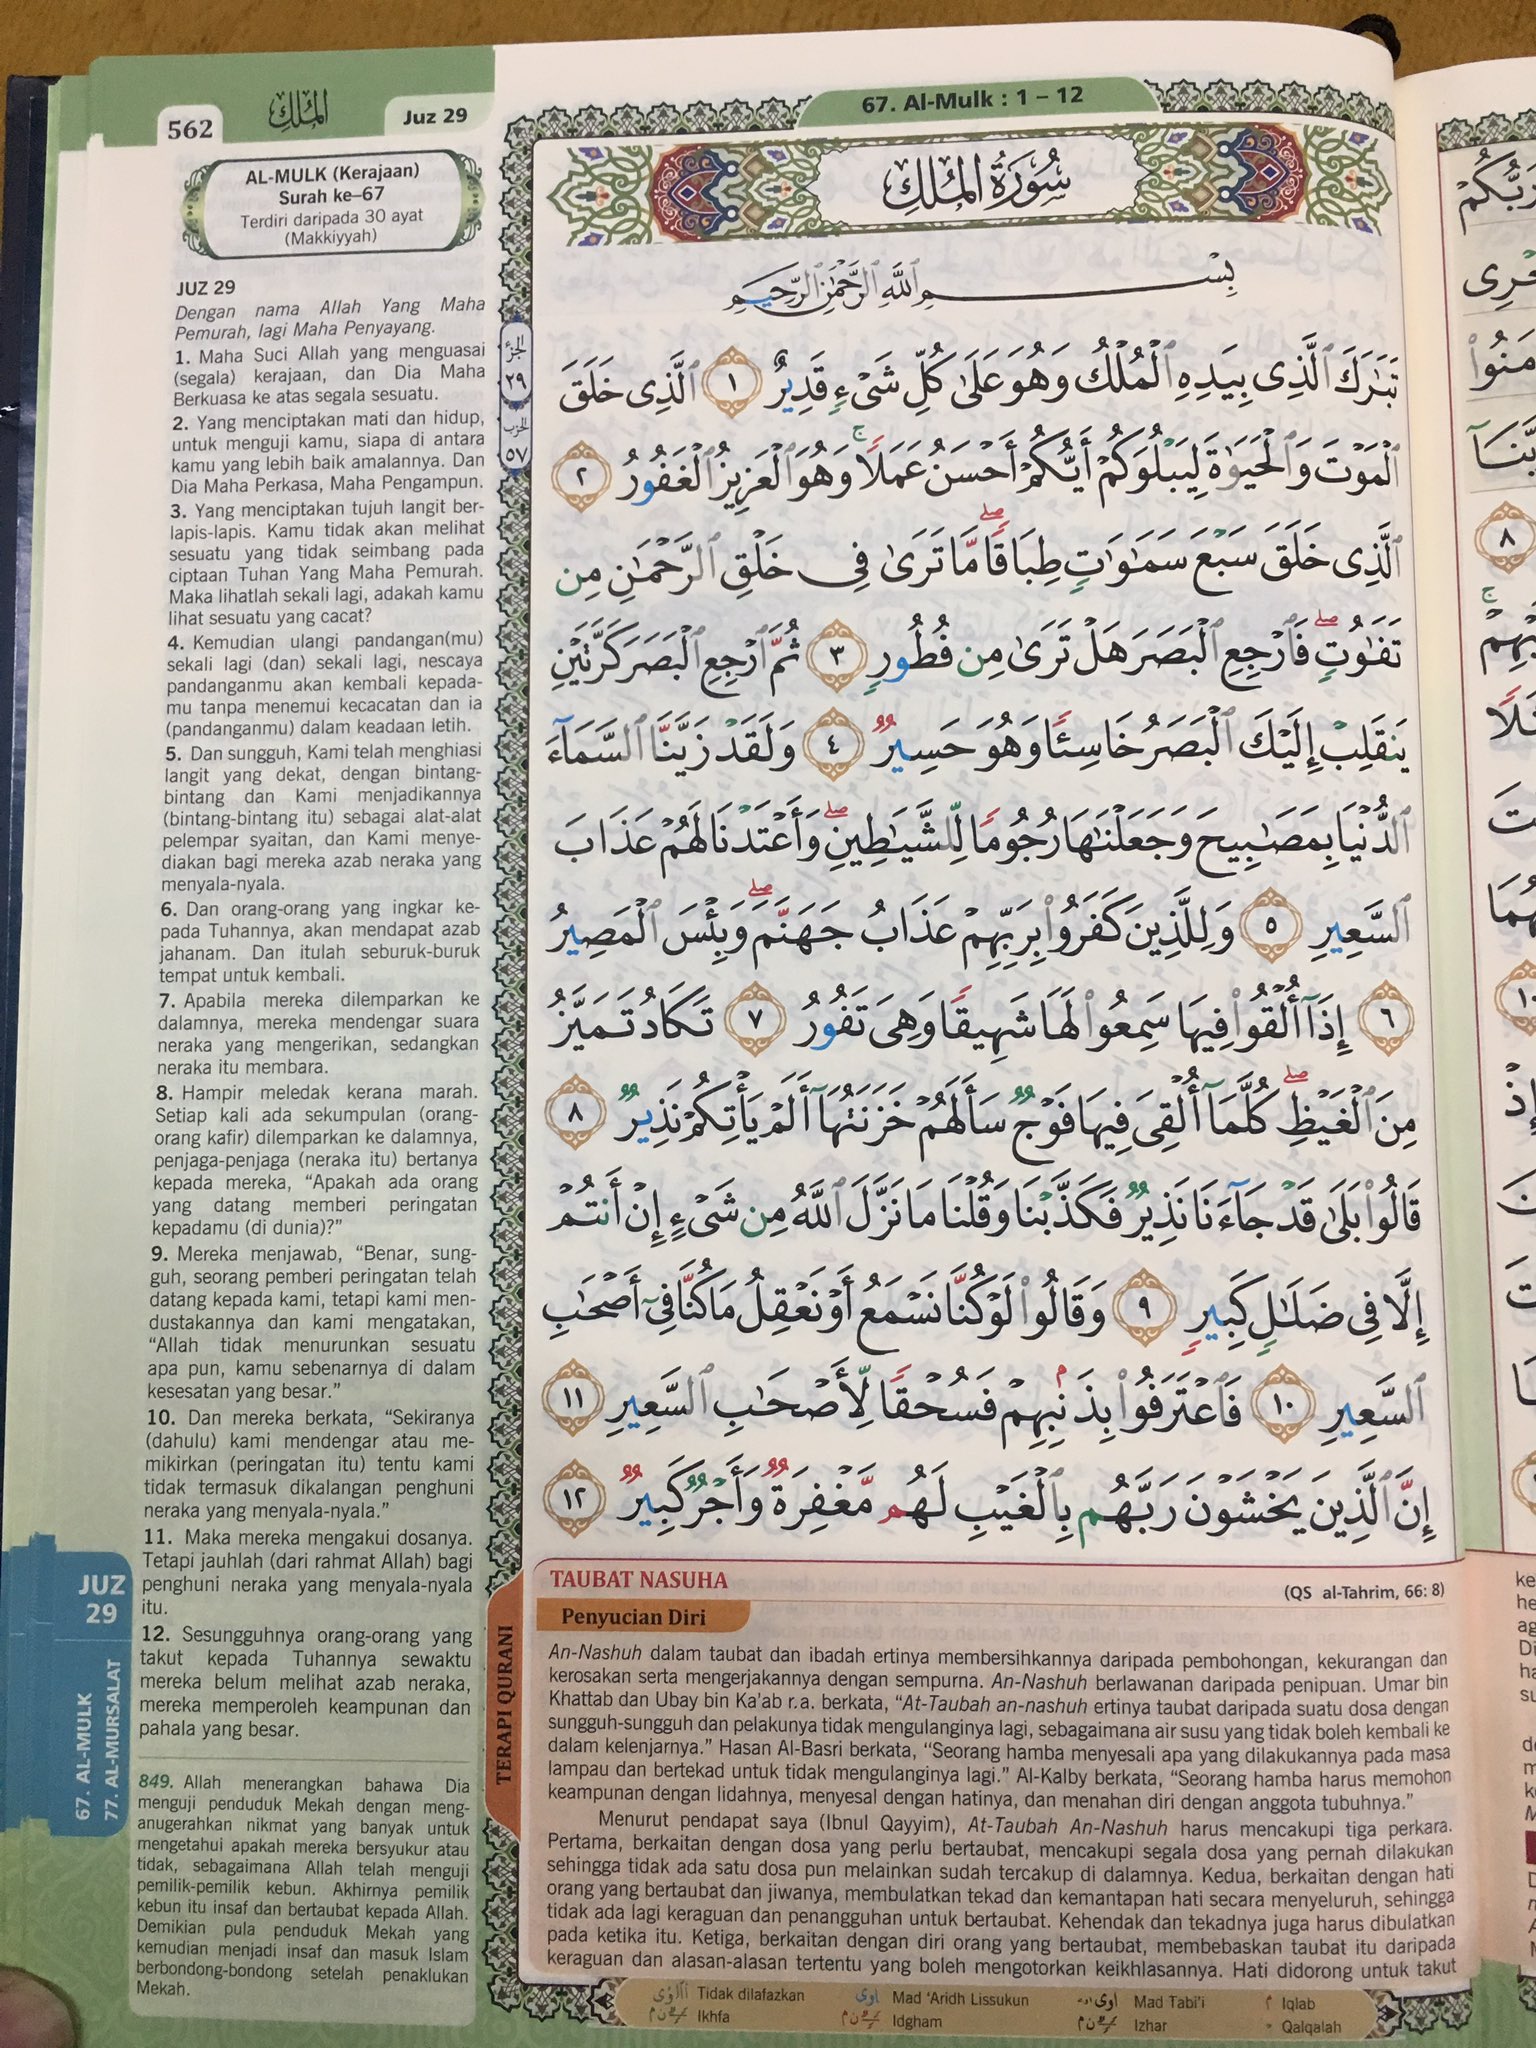 562
الملك
Juz 29
67. Al-Mulk : 1 – 12
AL-MULK (Kerajaan)
Surah ke–67
Terdiri daripada 30 ayat
(Makkiyyah)
JUZ 29
Dengan nama Allah Yang Maha
Pemurah, lagi Maha Penyayang.
1. Maha Suci Allah yang menguasai
(segala) kerajaan, dan Dia Maha
Berkuasa ke atas segala sesuatu.
2. Yang menciptakan mati dan hidup,
untuk menguji kamu, siapa di antara
kamu yang lebih baik amalannya. Dan
Dia Maha Perkasa, Maha Pengampun.
3. Yang menciptakan tujuh langit ber-
lapis-lapis. Kamu tidak akan melihat
sesuatu yang tidak seimbang pada
ciptaan Tuhan Yang Maha Pemurah.
Maka lihatlah sekali lagi, adakah kamu
lihat sesuatu yang cacat?
4. Kemudian ulangi pandangan(mu)
sekali lagi (dan) sekali lagi, nescaya
pandanganmu akan kembali kepada-
mu tanpa menemui kecacatan dan ia
(pandanganmu) dalam keadaan letih.
5. Dan sungguh, Kami telah menghiasi
langit yang dekat, dengan bintang-
bintang dan Kami menjadikannya
(bintang-bintang itu) sebagai alat-alat
pelempar syaitan, dan Kami menye-
diakan bagi mereka azab neraka yang
menyala-nyala.
6. Dan orang-orang yang ingkar ke-
pada Tuhannya, akan mendapat azab
jahanam. Dan itulah seburuk-buruk
tempat untuk kembali.
7. Apabila mereka dilemparkan ke
dalamnya, mereka mendengar suara
neraka yang mengerikan, sedangkan
neraka itu membara.
8. Hampir meledak kerana marah.
Setiap kali ada sekumpulan (orang-
orang kafir) dilemparkan ke dalamnya,
penjaga-penjaga (neraka itu) bertanya
kepada mereka, “Apakah ada orang
yang datang memberi peringatan
kepadamu (di dunia)?”
9. Mereka menjawab, “Benar, sung-
guh, seorang pemberi peringatan telah
datang kepada kami, tetapi kami men-
dustakannya dan kami mengatakan,
“Allah tidak menurunkan sesuatu
apa pun, kamu sebenarnya di dalam
kesesatan yang besar.”
10. Dan mereka berkata, “Sekiranya
(dahulu) kami mendengar atau me-
mikirkan (peringatan itu) tentu kami
tidak termasuk dikalangan penghuni
neraka yang menyala-nyala.”
11. Maka mereka mengakui dosanya.
Tetapi jauhlah (dari rahmat Allah) bagi
penghuni neraka yang menyala-nyala
itu.
12. Sesungguhnya orang-orang yang
takut kepada Tuhannya sewaktu
mereka belum melihat azab neraka,
mereka memperoleh keampunan dan
pahala yang besar.
849. Allah menerangkan bahawa Dia
menguji penduduk Mekah dengan meng-
anugerahkan nikmat yang banyak untuk
mengetahui apakah mereka bersyukur atau
tidak, sebagaimana Allah telah menguji
pemilik-pemilik kebun. Akhirnya pemilik
kebun itu insaf dan bertaubat kepada Allah.
Demikian pula penduduk Mekah yang
kemudian menjadi insaf dan masuk Islam
berbondong-bondong setelah penaklukan
Mekah.
JUZ
29
67. AL-MULK
77. AL-MURSALAT
الجزء
٢٩
الحزب
٥٧
سُورَةُ الْمُلْكِ
بِسْمِ ٱللَّهِ ٱلرَّحْمَٰنِ ٱلرَّحِيمِ
تَبَٰرَكَ ٱلَّذِى بِيَدِهِ ٱلْمُلْكُ وَهُوَ عَلَىٰ كُلِّ شَىْءٍ قَدِيرٌ ١ ٱلَّذِى خَلَقَ
ٱلْمَوْتَ وَٱلْحَيَوٰةَ لِيَبْلُوَكُمْ أَيُّكُمْ أَحْسَنُ عَمَلًا ۚ وَهُوَ ٱلْعَزِيزُ ٱلْغَفُورُ ٢
ٱلَّذِى خَلَقَ سَبْعَ سَمَٰوَٰتٍ طِبَاقًا ۖ مَّا تَرَىٰ فِى خَلْقِ ٱلرَّحْمَٰنِ مِن
تَفَٰوُتٍ ۖ فَٱرْجِعِ ٱلْبَصَرَ هَلْ تَرَىٰ مِن فُطُورٍ ٣ ثُمَّ ٱرْجِعِ ٱلْبَصَرَ كَرَّتَيْنِ
يَنقَلِبْ إِلَيْكَ ٱلْبَصَرُ خَاسِئًا وَهُوَ حَسِيرٌ ٤ وَلَقَدْ زَيَّنَّا ٱلسَّمَآءَ
ٱلدُّنْيَا بِمَصَٰبِيحَ وَجَعَلْنَٰهَا رُجُومًا لِّلشَّيَٰطِينِ ۖ وَأَعْتَدْنَا لَهُمْ عَذَابَ
ٱلسَّعِيرِ ٥ وَلِلَّذِينَ كَفَرُوا۟ بِرَبِّهِمْ عَذَابُ جَهَنَّمَ ۖ وَبِئْسَ ٱلْمَصِيرُ
٦ إِذَآ أُلْقُوا۟ فِيهَا سَمِعُوا۟ لَهَا شَهِيقًا وَهِىَ تَفُورُ ٧ تَكَادُ تَمَيَّزُ
مِنَ ٱلْغَيْظِ ۖ كُلَّمَآ أُلْقِىَ فِيهَا فَوْجٌ سَأَلَهُمْ خَزَنَتُهَآ أَلَمْ يَأْتِكُمْ نَذِيرٌ ٨
قَالُوا۟ بَلَىٰ قَدْ جَآءَنَا نَذِيرٌ فَكَذَّبْنَا وَقُلْنَا مَا نَزَّلَ ٱللَّهُ مِن شَىْءٍ إِنْ أَنتُمْ
إِلَّا فِى ضَلَٰلٍ كَبِيرٍ ٩ وَقَالُوا۟ لَوْ كُنَّا نَسْمَعُ أَوْ نَعْقِلُ مَا كُنَّا فِىٓ أَصْحَٰبِ
ٱلسَّعِيرِ ١٠ فَٱعْتَرَفُوا۟ بِذَنۢبِهِمْ فَسُحْقًا لِّأَصْحَٰبِ ٱلسَّعِيرِ ١١
إِنَّ ٱلَّذِينَ يَخْشَوْنَ رَبَّهُم بِٱلْغَيْبِ لَهُم مَّغْفِرَةٌ وَأَجْرٌ كَبِيرٌ ١٢
TERAPI QURANI
TAUBAT NASUHA
(QS al-Tahrim, 66: 8)
Penyucian Diri
An-Nashuh dalam taubat dan ibadah ertinya membersihkannya daripada pembohongan, kekurangan dan
kerosakan serta mengerjakannya dengan sempurna. An-Nashuh berlawanan daripada penipuan. Umar bin
Khattab dan Ubay bin Ka’ab r.a. berkata, “At-Taubah an-nashuh ertinya taubat daripada suatu dosa dengan
sungguh-sungguh dan pelakunya tidak mengulanginya lagi, sebagaimana air susu yang tidak boleh kembali ke
dalam kelenjarnya.” Hasan Al-Basri berkata, “Seorang hamba menyesali apa yang dilakukannya pada masa
lampau dan bertekad untuk tidak mengulanginya lagi.” Al-Kalby berkata, “Seorang hamba harus memohon
keampunan dengan lidahnya, menyesal dengan hatinya, dan menahan diri dengan anggota tubuhnya.”
Menurut pendapat saya (Ibnul Qayyim), At-Taubah An-Nashuh harus mencakupi tiga perkara.
Pertama, berkaitan dengan dosa yang perlu bertaubat, mencakupi segala dosa yang pernah dilakukan
sehingga tidak ada satu dosa pun melainkan sudah tercakup di dalamnya. Kedua, berkaitan dengan hati
orang yang bertaubat dan jiwanya, membulatkan tekad dan kemantapan hati secara menyeluruh, sehingga
tidak ada lagi keraguan dan penangguhan untuk bertaubat. Kehendak dan tekadnya juga harus dibulatkan
pada ketika itu. Ketiga, berkaitan dengan diri orang yang bertaubat, membebaskan taubat itu daripada
keraguan dan alasan-alasan tertentu yang boleh mengotorkan keikhlasannya. Hati didorong untuk takut
Tidak dilafazkan
Mad ‘Aridh Lissukun
Mad Tabi’i
Iqlab
Ikhfa
Idgham
Izhar
Qalqalah